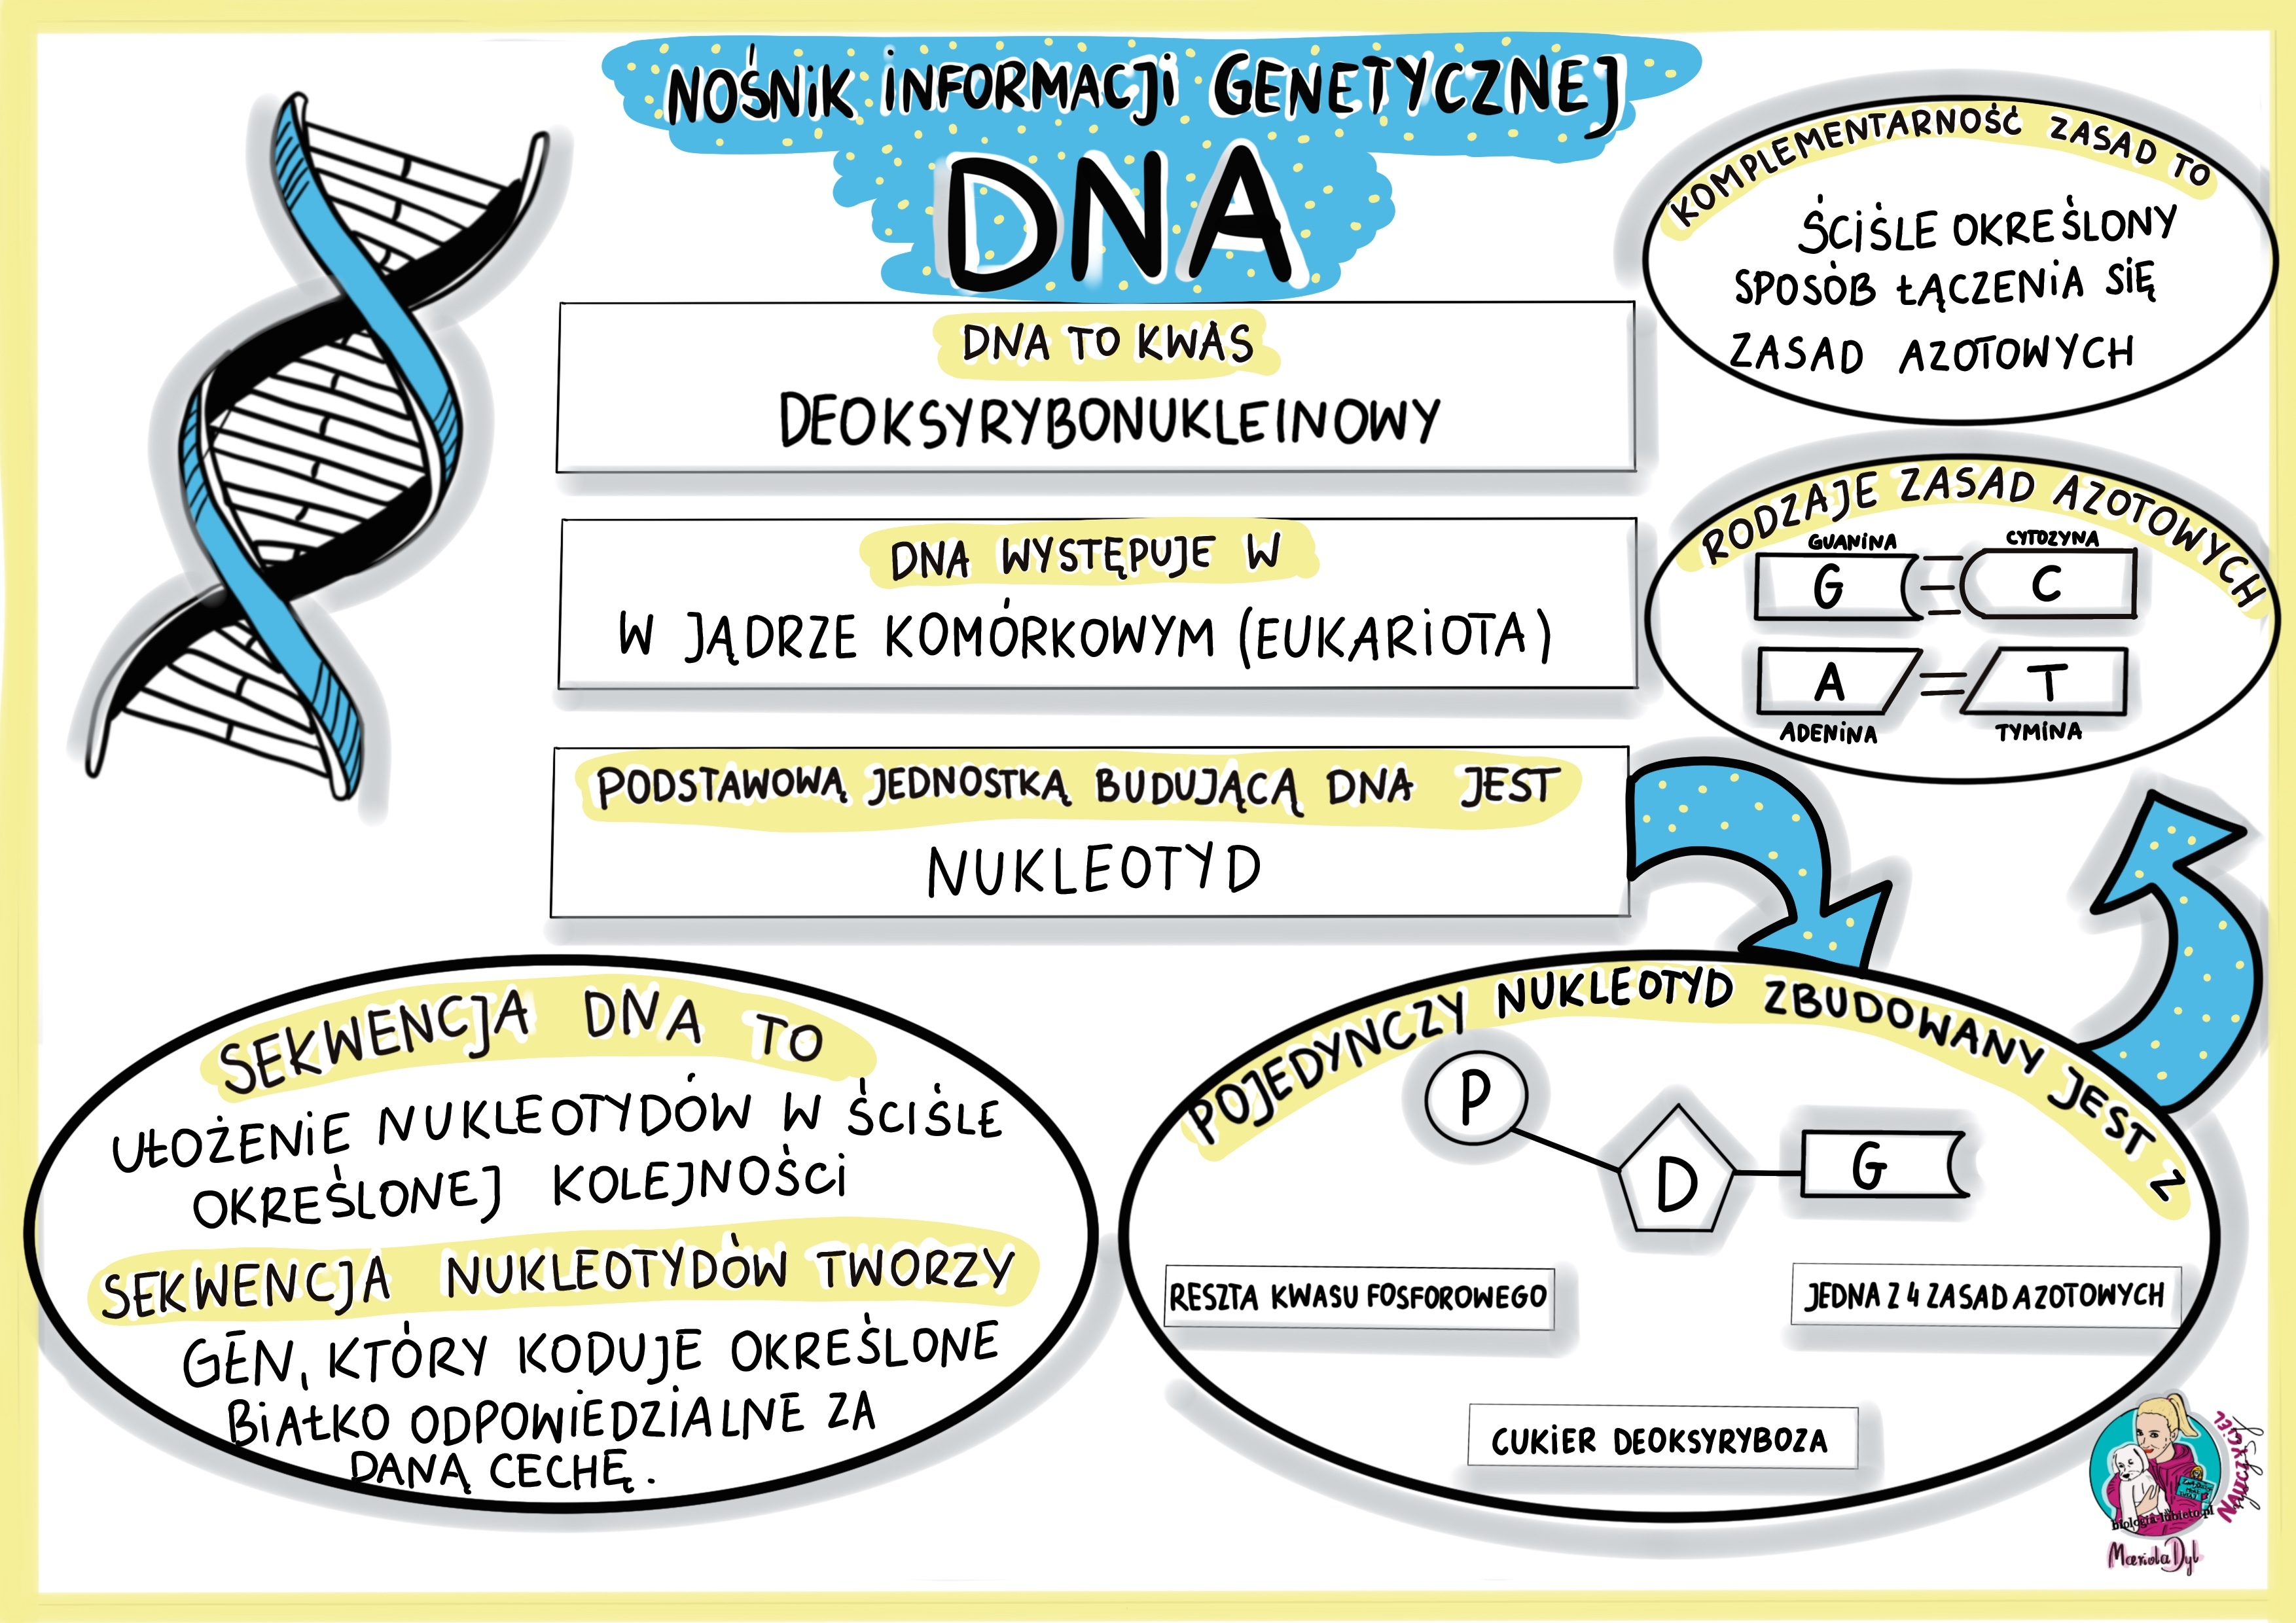 NOŚNIK INFORMACJI GENETYCZNEJ
DNA
DNA TO KWAS
DEOKSYRYBONUKLEINOWY
DNA WYSTĘPUJE W
W JĄDRZE KOMÓRKOWYM (EUKARIOTA)
PODSTAWOWĄ JEDNOSTKĄ BUDUJĄCĄ DNA JEST
NUKLEOTYD
KOMPLEMENTARNOŚĆ ZASAD TO
ŚCIŚLE OKREŚLONY
SPOSÓB ŁĄCZENIA SIĘ
ZASAD AZOTOWYCH
RODZAJE ZASAD AZOTOWYCH
GUANINA CYTOZYNA
G C
A T
ADENINA TYMINA
SEKWENCJA DNA TO
UŁOŻENIE NUKLEOTYDÓW W ŚCIŚLE
OKREŚLONEJ KOLEJNOŚCI
SEKWENCJA NUKLEOTYDÓW TWORZY
GEN, KTÓRY KODUJE OKREŚLONE
BIAŁKO ODPOWIEDZIALNE ZA
DANĄ CECHĘ.
POJEDYNCZY NUKLEOTYD ZBUDOWANY JEST Z
P
D
G
RESZTA KWASU FOSFOROWEGO
JEDNA Z 4 ZASAD AZOTOWYCH
CUKIER DEOKSYRYBOZA
NAUCZYCIEL
biologia-lubieto.pl
Mariola Dyl